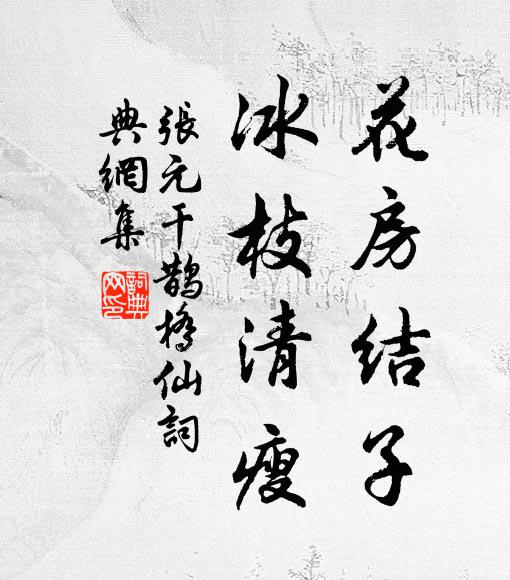 花房結子
冰枝清瘦
張元干鵲橋仙詞
典網集
詞典
网印